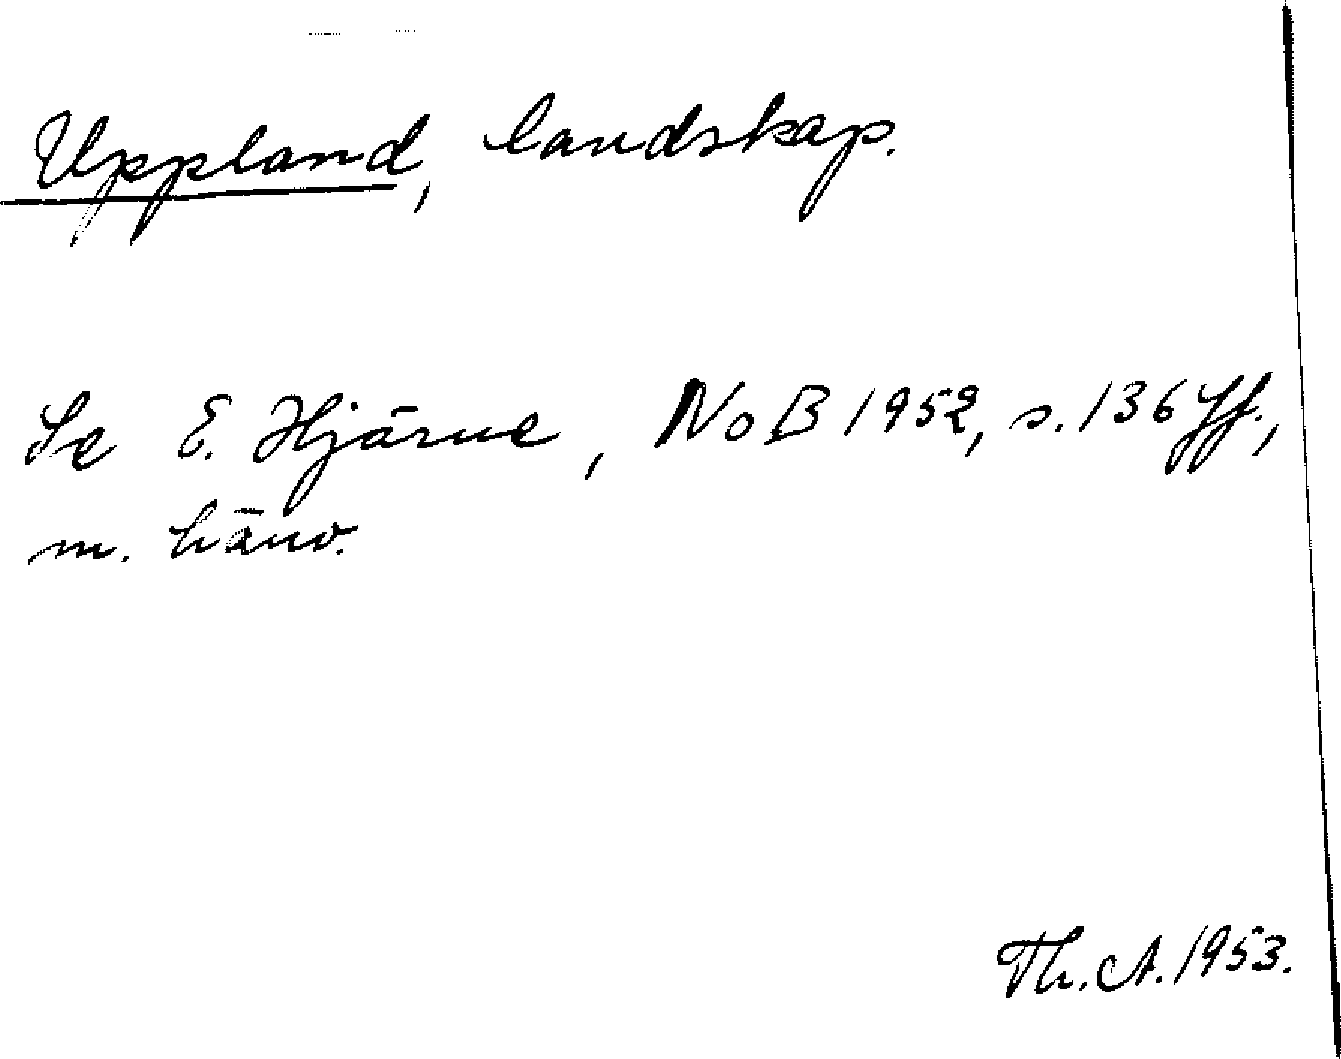 Uppland, landskap.
Se E. Hjärne, NoB 1952, s. 136 ff.,
m. hänv.
Th. A. 1953.